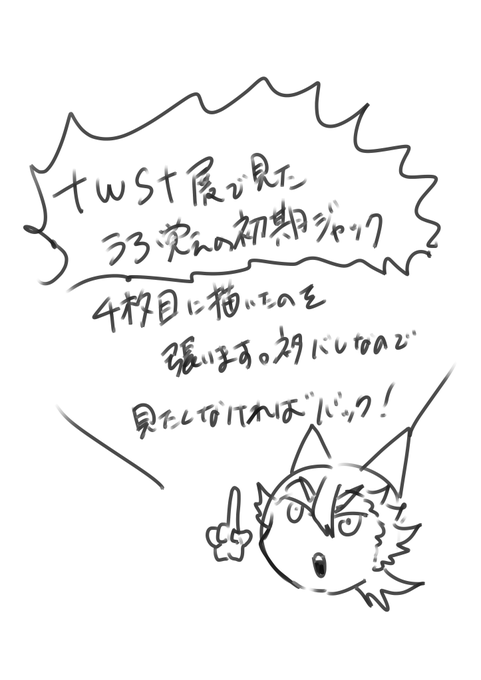 twst展で見た
うろ覚えの初期ジャック
4枚目に描いたのを
張ります。ネタバレなので
見たしなければバック!